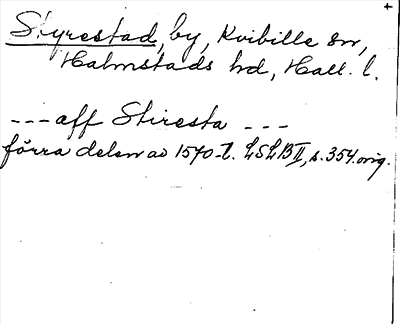 Styrestad, by, Kvibille sn,
Halmstads hd, Hall. l.
--- aff Stiresta ---
förra delen av 1540-t. LSLB II, s. 354. orig.